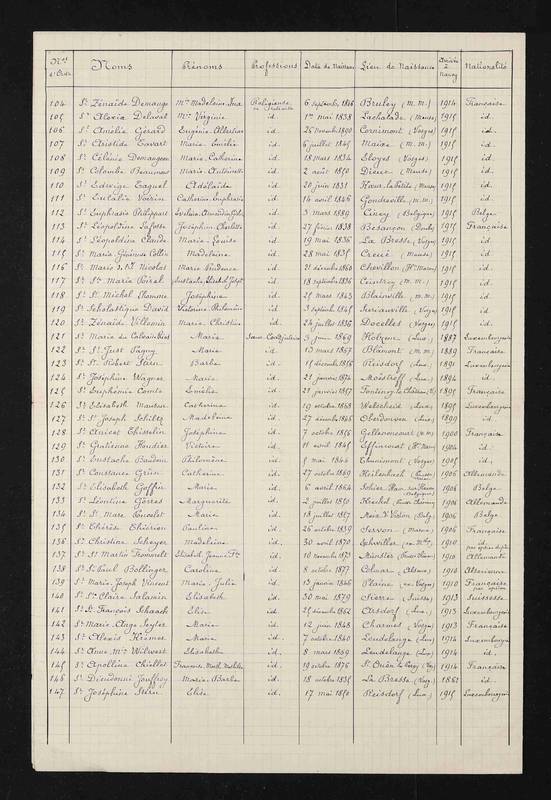 Nos d'Ordre Noms Prénoms Professions Date de Naissance Lieu de Naissance Arrivée à Nancy Nationalité
104 Sr Zénaïde Demange Mie Madeleine Religieuse 6 septembre 1866 Bruley (M.M.) 1914 Française
105 Sr Alexia Delaval Mie Virginie id. 1er mai 1838 Lachalade (Meuse) 1915 id.
106 Sr Amélie Gérard Eugénie id. 26 Novembre 1890 Cornimont (Vosges) 1915 id.
107 Sr Aristide Tavart Marie Emélie id. 6 juillet 1845 (M.M.) 1915 id.
108 Sr Célénie Demangeon Marie Catherine id. 18 mars 1834 Eloyes (Vosges) 1915 id.
109 Sr Colombe Beaumont Marie Antoinette id. 2 août 1850 Dieue (Meuse) 1915 id.
110 Sr Edwige Taquel Adélaïde id. 20 juin 1831 (Meuse) 1915 id.
111 Sr Eulalie Voirin Catherine Euphrasie id. 14 avril 1846 Gondreville (M.M.) 1915 id.
112 Sr Euphrasie Philippart id. 3 mars 1889 Ciney (Belgique) 1915 Belge
113 Sr Léopoldine Lafosse Joséphine Charlotte id. 27 février 1838 Besançon (Doubs) 1915 Française
114 Sr Léopoldina Claude Marie Louise id. 19 mai 1836 La Bresse (Vosges) 1915 id.
115 Sr Marie Géminus Collin Madeleine id. 28 mai 1835 (Meuse) 1915 id.
116 Sr Marie Nicolas Marie Prudence id. 21 décembre 1860 Chevillon (Hte Marne) 1915 id.
117 Sr Ste Marie Poirel id. 18 septembre 1836 Ceintrey (M.M.) 1915 id.
118 Sr St Michel Joséphine id. 25 mars 1843 Blainville (M.M.) 1915 id.
119 Sr Scholastique David Victorine Philomène id. 3 septembre 1845 (Vosges) 1915 id.
120 Sr Zénaïde Villemin Marie Christine id. 24 juillet 1836 Docelles (Vosges) 1915 id.
121 Sr Marie du Calvaire Marie Sœur Coadjutrice 3 juin 1869 (Lux.) 1887 Luxembourgeoise
122 Sr St Just Pagny Marie id. 13 mars 1867 Blâmont (M.M.) 1889 Française
123 Sr St Robert Stirn Barbe id. décembre Reisdorf (Lux.) 1891 Luxembourgeoise
124 Sr Joséphine Wagner Marie id. 21 janvier 1874 Moesdorf (Lux.) 1894 id.
125 Sr Euphémie Comte Emélie id. 21 janvier 1857 Fontenoy le Château 1895 Française
126 Sr Elisabeth Catherine id. 19 octobre 1868 Welscheid (Lux.) 1895 Luxembourgeoise
127 Sr St Joseph Schiltz Madeleine id. 27 décembre 1866 (Lux.) 1899 id.
128 Sr Anicet Thisselin Joséphine id. 7 octobre 1856 Gellenoncourt (M.M.) 1900 Française
129 Sr Gratienne Houdier Victoire id. 11 avril 1845 Effincourt (Hte Marne) 1904 id.
130 Sr Eustache Baudoin Philomène id. 5 mai 1846 Thunimont (Vosges) 1905 id.
131 Sr Constance Grün Catherine id. 27 octobre 1869 1906 Allemande
132 Sr Elisabeth Goffin Marie id. 6 avril 1864 1906 Belge
133 Sr Léontine Görres Marguerite id. 2 juillet 1850 1906 Allemande
134 Sr St Marc Poncelet Marie id. 18 juillet 1857 (Belg.) 1906 Belge
135 Sr Thérèse Thiérion Pauline id. 26 octobre 1839 (Marne) 1906 Française
136 Sr Christine Scheyer Madeleine id. 30 avril 1870 1910 id.
137 Sr St Martin id. 10 novembre 1873 Münster 1910 Allemande
138 Sr St Paul Bollinger Caroline id. 8 octobre 1877 Colmar (Alsace) 1910 Alsacienne
139 Sr Marie Joseph Vincent Marie Julie id. 13 janvier 1846 Plaine (Vosges) 1910 Française
140 Sr Ste Claire Salamin Elisabeth id. 30 mai 1879 Sierre (Suisse) 1913 Suissesse
141 Sr St François Schaack Elise id. 25 décembre 1862 Arsdorf (Lux.) 1913 Luxembourgeoise
142 Sr Marie Ange Seyler Marie id. 12 juin 1848 Charmes (Vosges) 1913 Française
143 Sr Alexis Kremer Marie id. 7 octobre 1840 Leudelange (Lux.) 1914 Luxembourgeoise
144 Sr Anne Mie Wilwert Elisabeth id. 8 mars 1859 Leudelange (Lux.) 1914 id.
145 Sr Apolline Chiollet id. 19 octobre 1876 1914 Française
146 Sr Dieudonné Jouffroy Marie Barbe id. 18 octobre 1835 La Bresse (Vosg.) 1862 id.
147 Sr Joséphine Stirn Elise id. 17 mai 1850 Reisdorf (Lux.) 1915 Luxembourgeoise